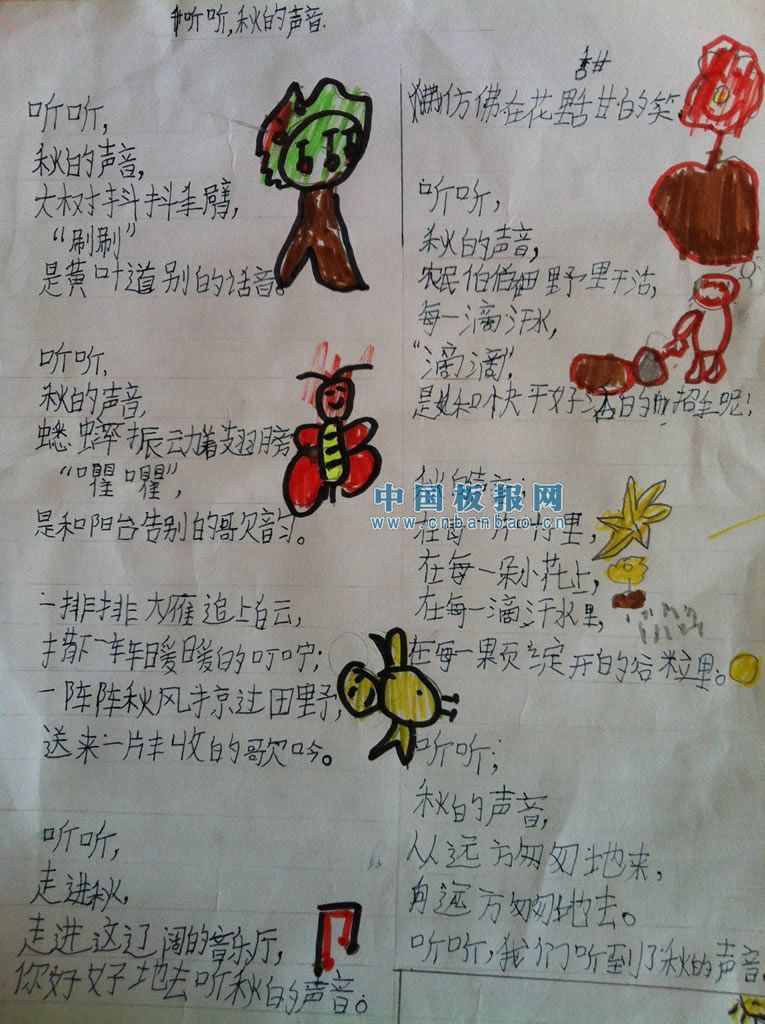 听听,秋的声音.
听听,
秋的声音,
大树抖抖手臂,
“刷刷”
是黄叶道别的话音。
听听,
秋的声音,
蟋蟀振动着翅膀
“㘗㘗”,
是和阳台告别的歌韵。
一排排大雁追上白云,
撒下一阵阵暖暖的叮咛;
一阵阵秋风掠过田野,
送来一片丰收的歌吟。
听听,
走进秋,
走进这辽阔的音乐厅,
你好好地去听秋的声音。
仿佛在花 甘的笑
听听,
秋的声音,
农民伯伯田野里干活,
每一滴汗水,
“滴滴”,
是 和 快 好 的 招 呢!
秋的声音;
在每一片叶里,
在每一朵小花上,
在每一滴汗水里,
在每一颗绽开的谷粒里。
听听;
秋的声音,
从远方匆匆地来,
向远方匆匆地去。
听听,我们听到了秋的声音
中国板报网
www.cnbanbao.cn